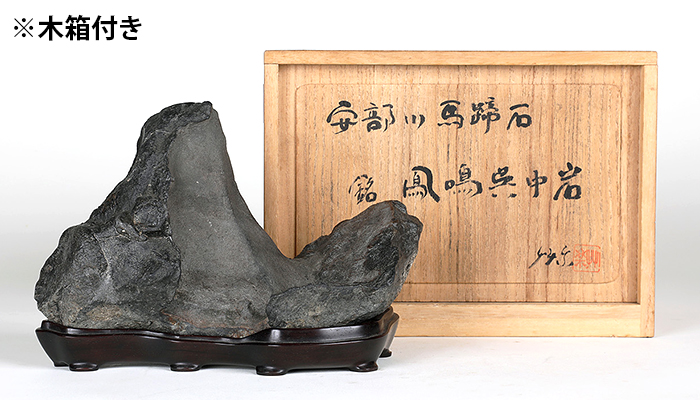 ※木箱付き
安部川馬蹄石
銘 鳳鳴呉中岩